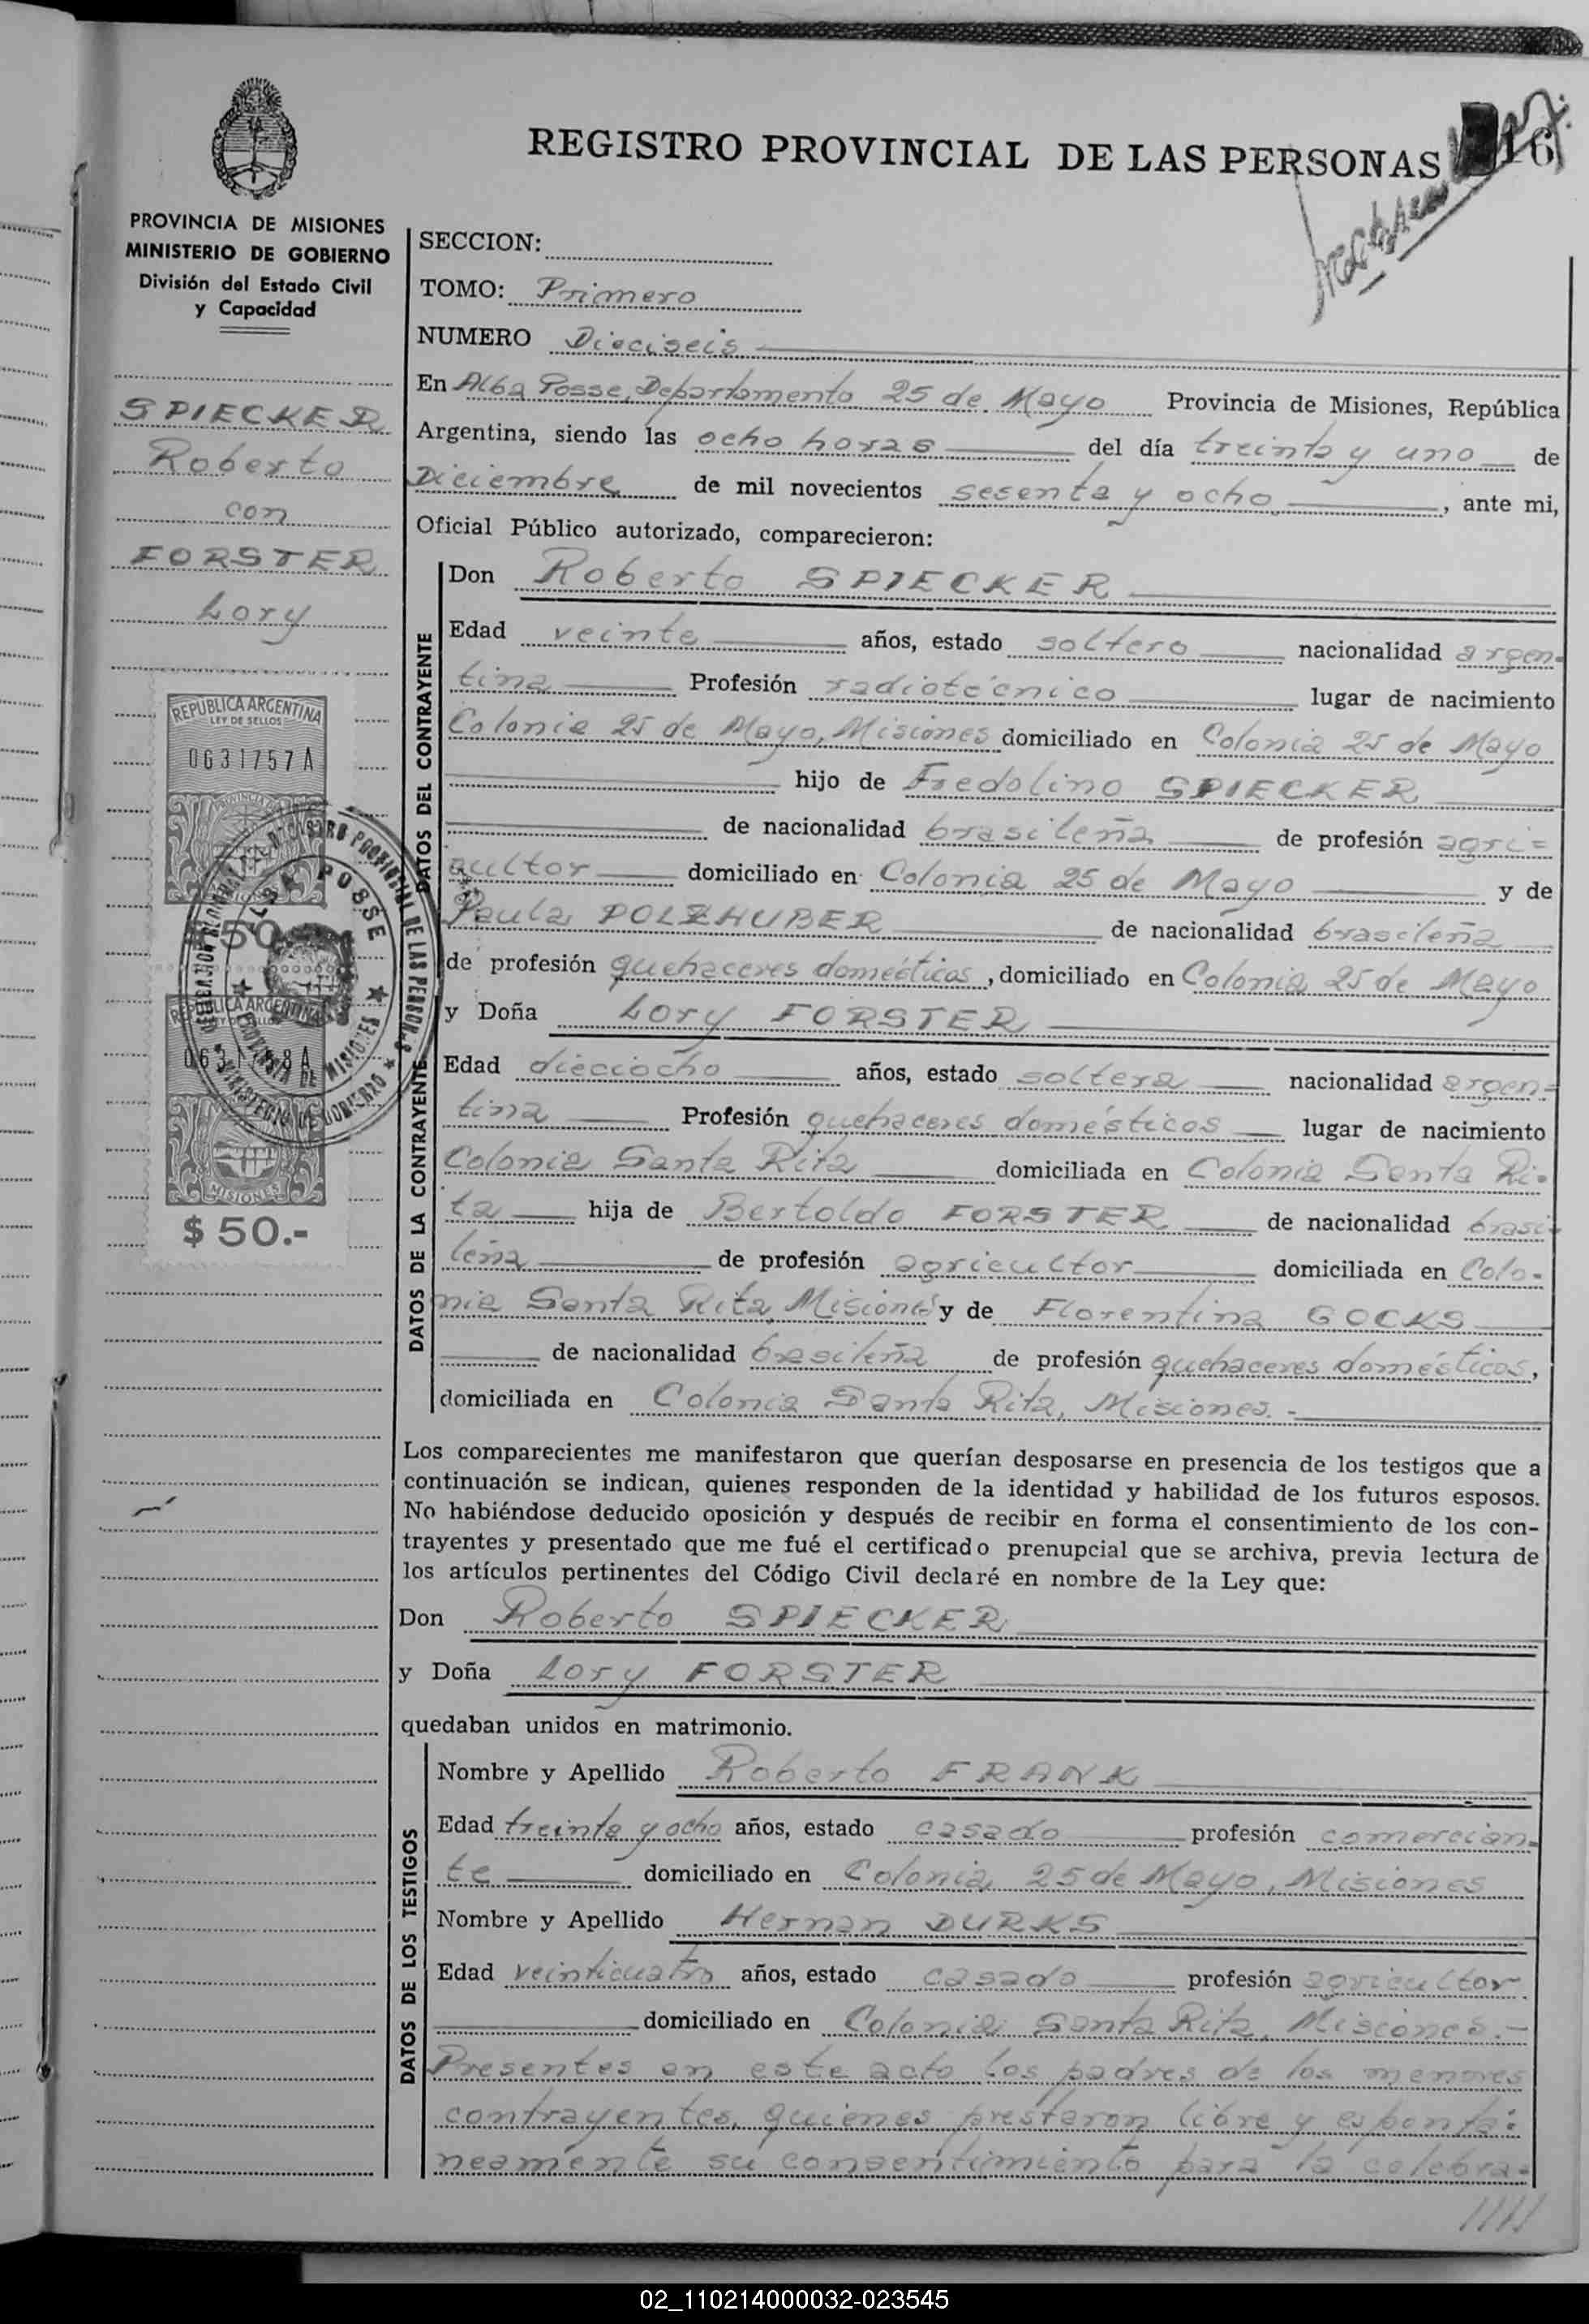 REGISTRO PROVINCIAL DE LAS PERSONAS
16
PROVINCIA DE MISIONES
MINISTERIO DE GOBIERNO
División del Estado Civil
y Capacidad
SPIECKER
Roberto
con
FORSTER
Lory
REPUBLICA ARGENTINA
LEY DE SELLOS
0631757A
$50.-
REPUBLICA ARGENTINA
MISIONES
$50.-
SECCION:
TOMO: Primero
NUMERO Dieciseis
En Alba Posse, Departamento 25 de Mayo Provincia de Misiones, República
Argentina, siendo las ocho horas del día treinta y uno de
Diciembre de mil novecientos sesenta y ocho, ante mi,
Oficial Público autorizado, comparecieron:
DATOS DEL CONTRAYENTE
Don Roberto SPIECKER
Edad veinte años, estado soltero nacionalidad argen-
tina Profesión radiotécnico lugar de nacimiento
Colonia 25 de Mayo, Misiones domiciliado en Colonia 25 de Mayo
hijo de Fredolino SPIECKER
de nacionalidad brasileña de profesión agri=
cultor domiciliado en Colonia 25 de Mayo y de
Paula POLZHUBER de nacionalidad brasileña
de profesión quehaceres domésticos, domiciliado en Colonia 25 de Mayo
DATOS DE LA CONTRAYENTE
y Doña Lory FORSTER
Edad dieciocho años, estado soltera nacionalidad argen=
tina Profesión quehaceres domésticos lugar de nacimiento
Colonia Santa Rita domiciliada en Colonia Santa Ri-
ta hija de Bertoldo FORSTER de nacionalidad brasi-
leña de profesión agricultor domiciliada en Colo-
nia Santa Rita, Misiones y de Florentina GOCKS
de nacionalidad brasileña de profesión quehaceres domésticos,
domiciliada en Colonia Santa Rita, Misiones.-
Los comparecientes me manifestaron que querían desposarse en presencia de los testigos que a
continuación se indican, quienes responden de la identidad y habilidad de los futuros esposos.
No habiéndose deducido oposición y después de recibir en forma el consentimiento de los con-
trayentes y presentado que me fué el certificado prenupcial que se archiva, previa lectura de
los artículos pertinentes del Código Civil declaré en nombre de la Ley que:
Don Roberto SPIECKER
y Doña Lory FORSTER
quedaban unidos en matrimonio.
DATOS DE LOS TESTIGOS
Nombre y Apellido Roberto FRANK
Edad treinta y ocho años, estado casado profesión comercian-
te domiciliado en Colonia 25 de Mayo, Misiones
Nombre y Apellido Hernan DURKS
Edad veinticuatro años, estado casado profesión agricultor
domiciliado en Colonia Santa Rita, Misiones.-
Presentes en este acto los padres de los menores
contrayentes, quienes prestaron libre y espontá=
neamente su consentimiento para la celebra-
////
02_110214000032-023545